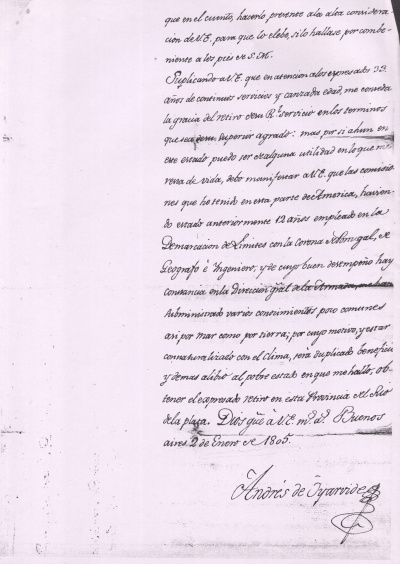 que en el cuento, hacerlo presente a la alta considera-
cion de V.E. para que lo eleve, si lo hallase por combe-
niente a los pies de S.M.
Suplicando a V.E. que en atencion a los expresados 33
años de continuos servicios y canzada edad, me conceda
la gracia del retiro de su Rl. servicio en los terminos
que sea de su superior agrado: mas por si ahun en
este estado puedo ser de alguna utilidad en lo que me
resta de vida, debo manifestar a V.E. que las comisio-
nes que he tenido en esta parte de America, havien-
do estado anteriormente 12 años empleado en la
Demarcacion de Limites con la Corona de Portugal, de
Geografo é Ingeniero, y de cuyo buen desempeño hay
constancia en la Direccion gral de la Armada, me han
subministrado varios conocimientos poco comunes
asi por mar como por tierra; por cuyo motivo, y estar
connaturalizado con el clima, será duplicado beneficio
y demas alibio al pobre estado en que me hallo, ob-
tener el expresado retiro en esta Provincia del Rio
de la plata. Dios gũe à V.E. ms. as. Buenos
aires 2 de Enero de 1805.
Andrés de Oyarvide